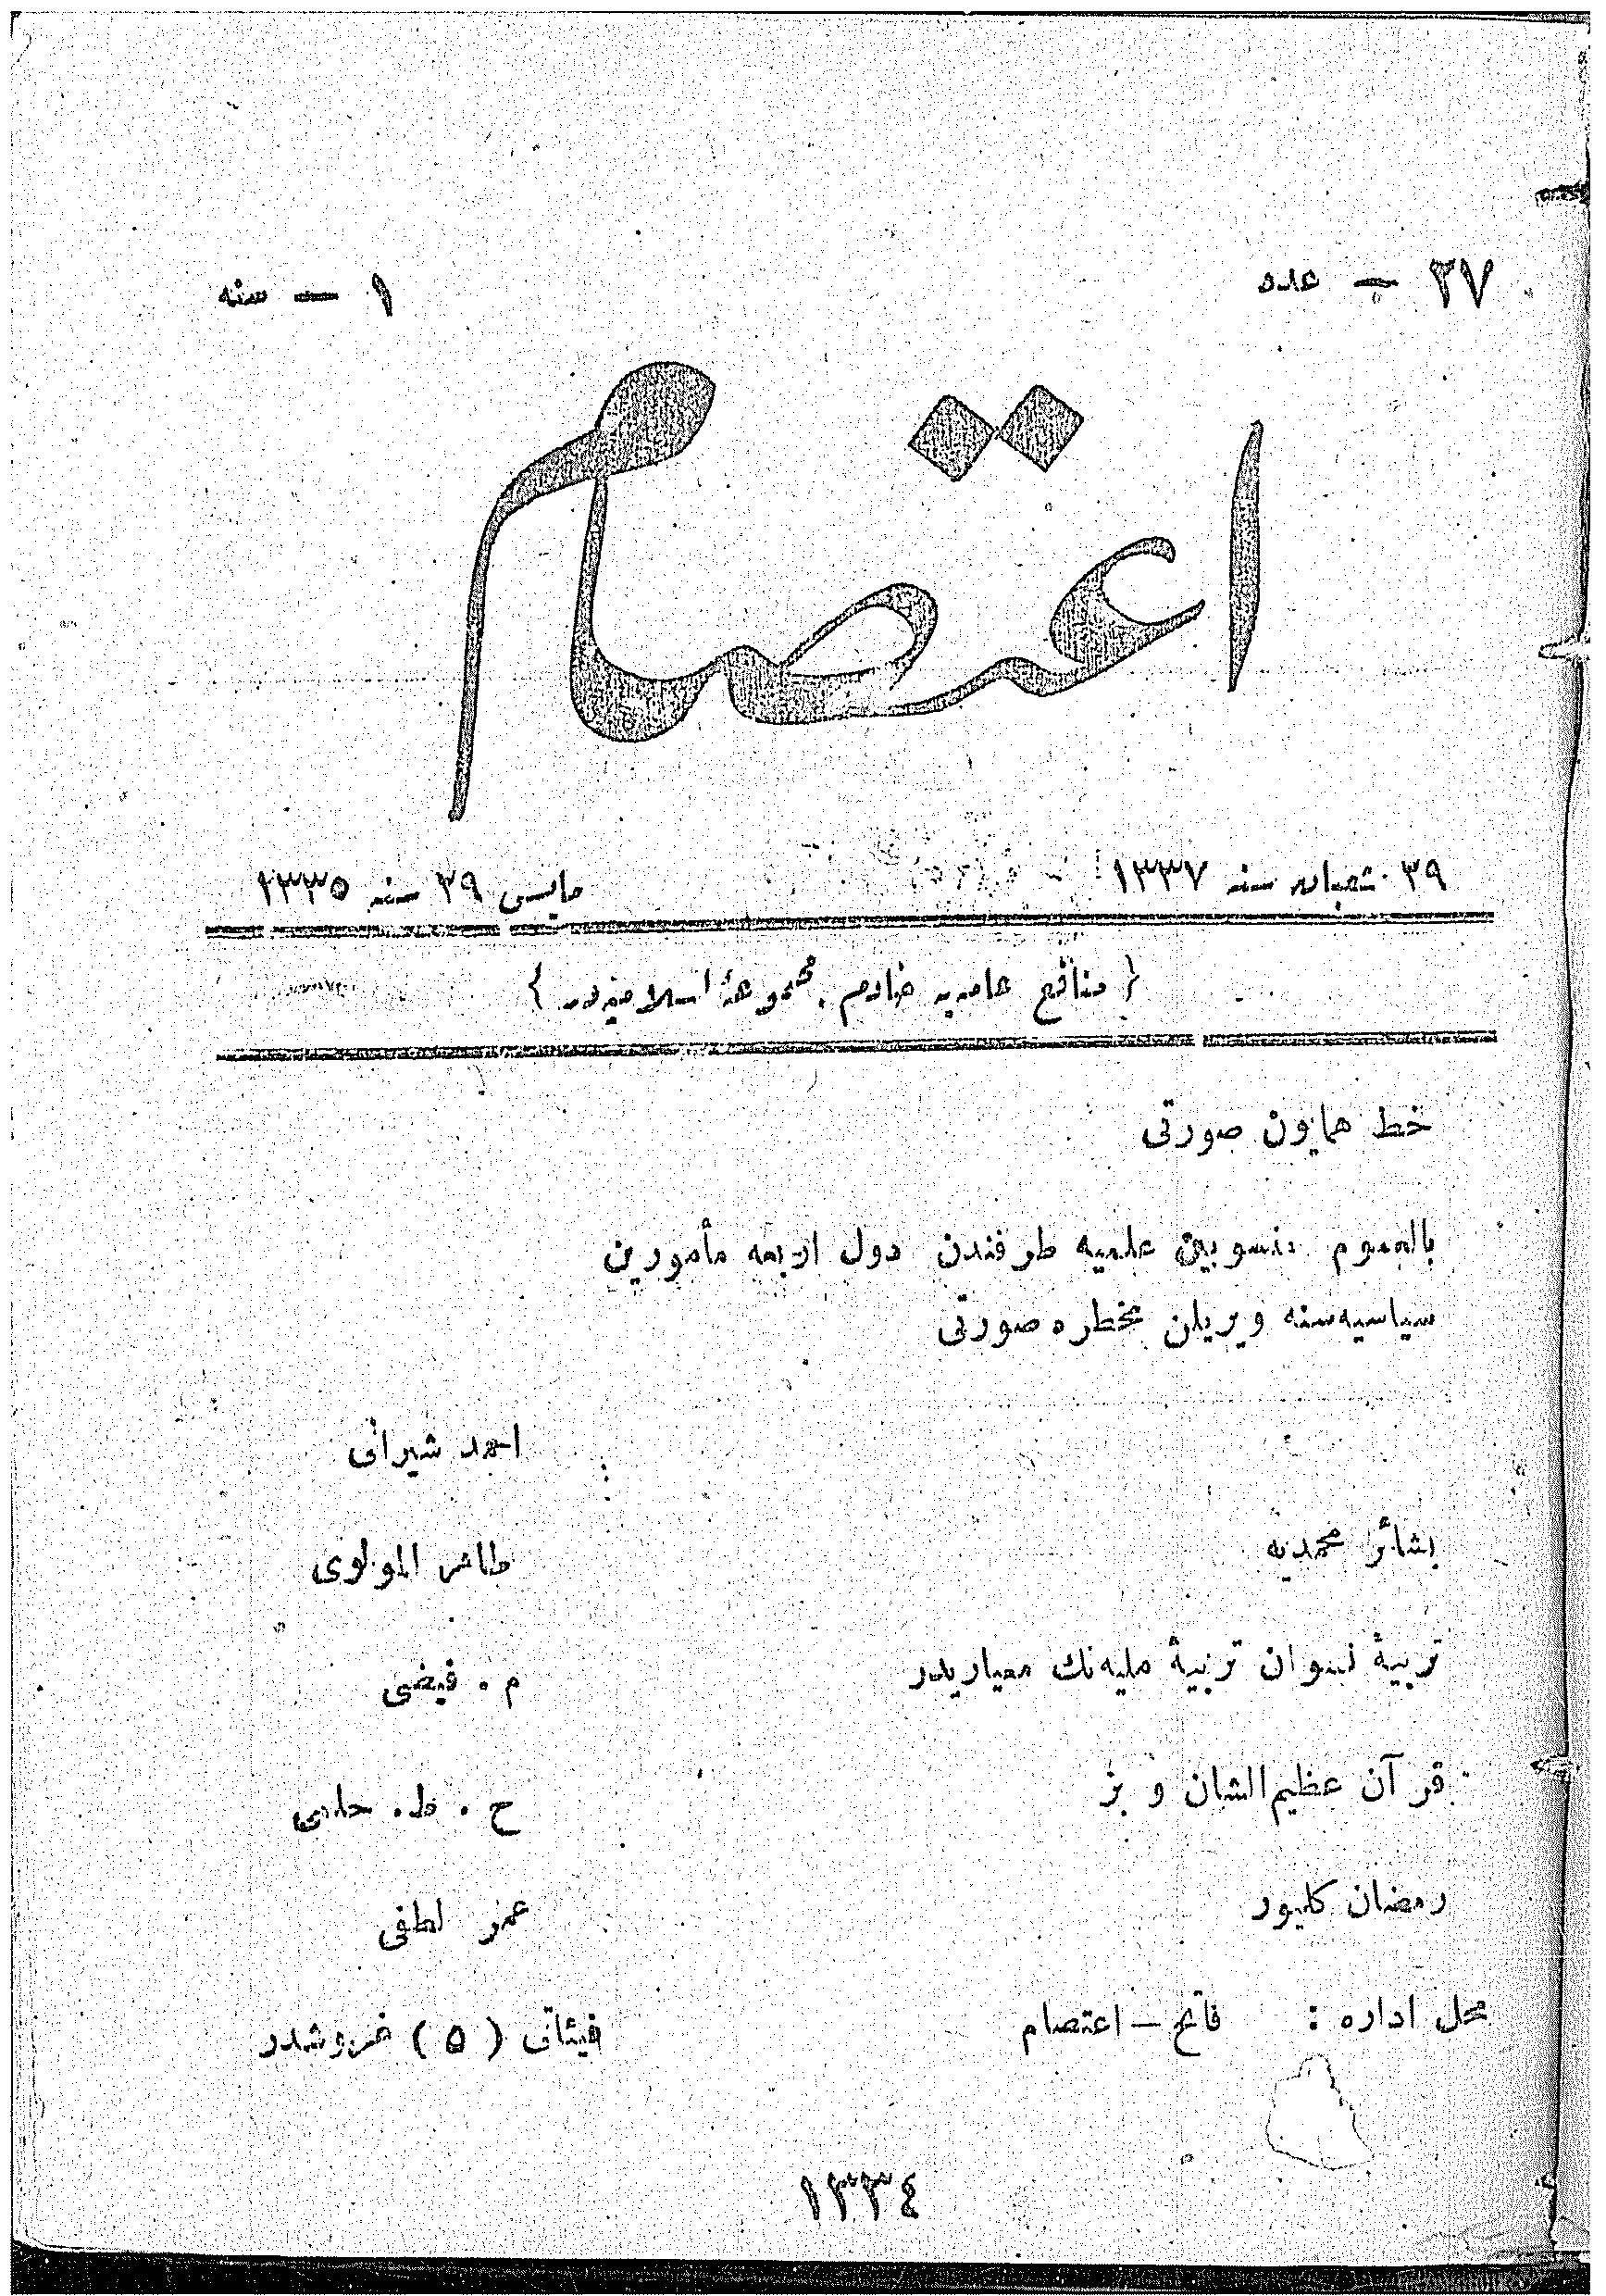 ٢٧ — عدد
١ — سنه
اعتصام
٢٩ شعبان سنه ١٣٣٧
مايس ٢٩ سنه ١٣٣٥
{ منافع عامه‌يه خادم مجموعۀ اسلاميه‌در }
خط همايون صورتى
بالعموم منسوبين علميه طرفندن دول اربعه مأمورين
سياسيه‌سنه ويريلن مخطره صورتى
احمد شيرانى
بشائر محمديه
طاهر المولوى
تربيۀ نسوان تربيۀ مليه‌نك معياريدر
م . فيضى
قرآن عظيم‌الشان و بز
ح . ط . حلمى
رمضان كليور
عمر لطفى
محل اداره : فاتح — اعتصام
فيئاتى ( ٥ ) غروشدر
١٣٣٤